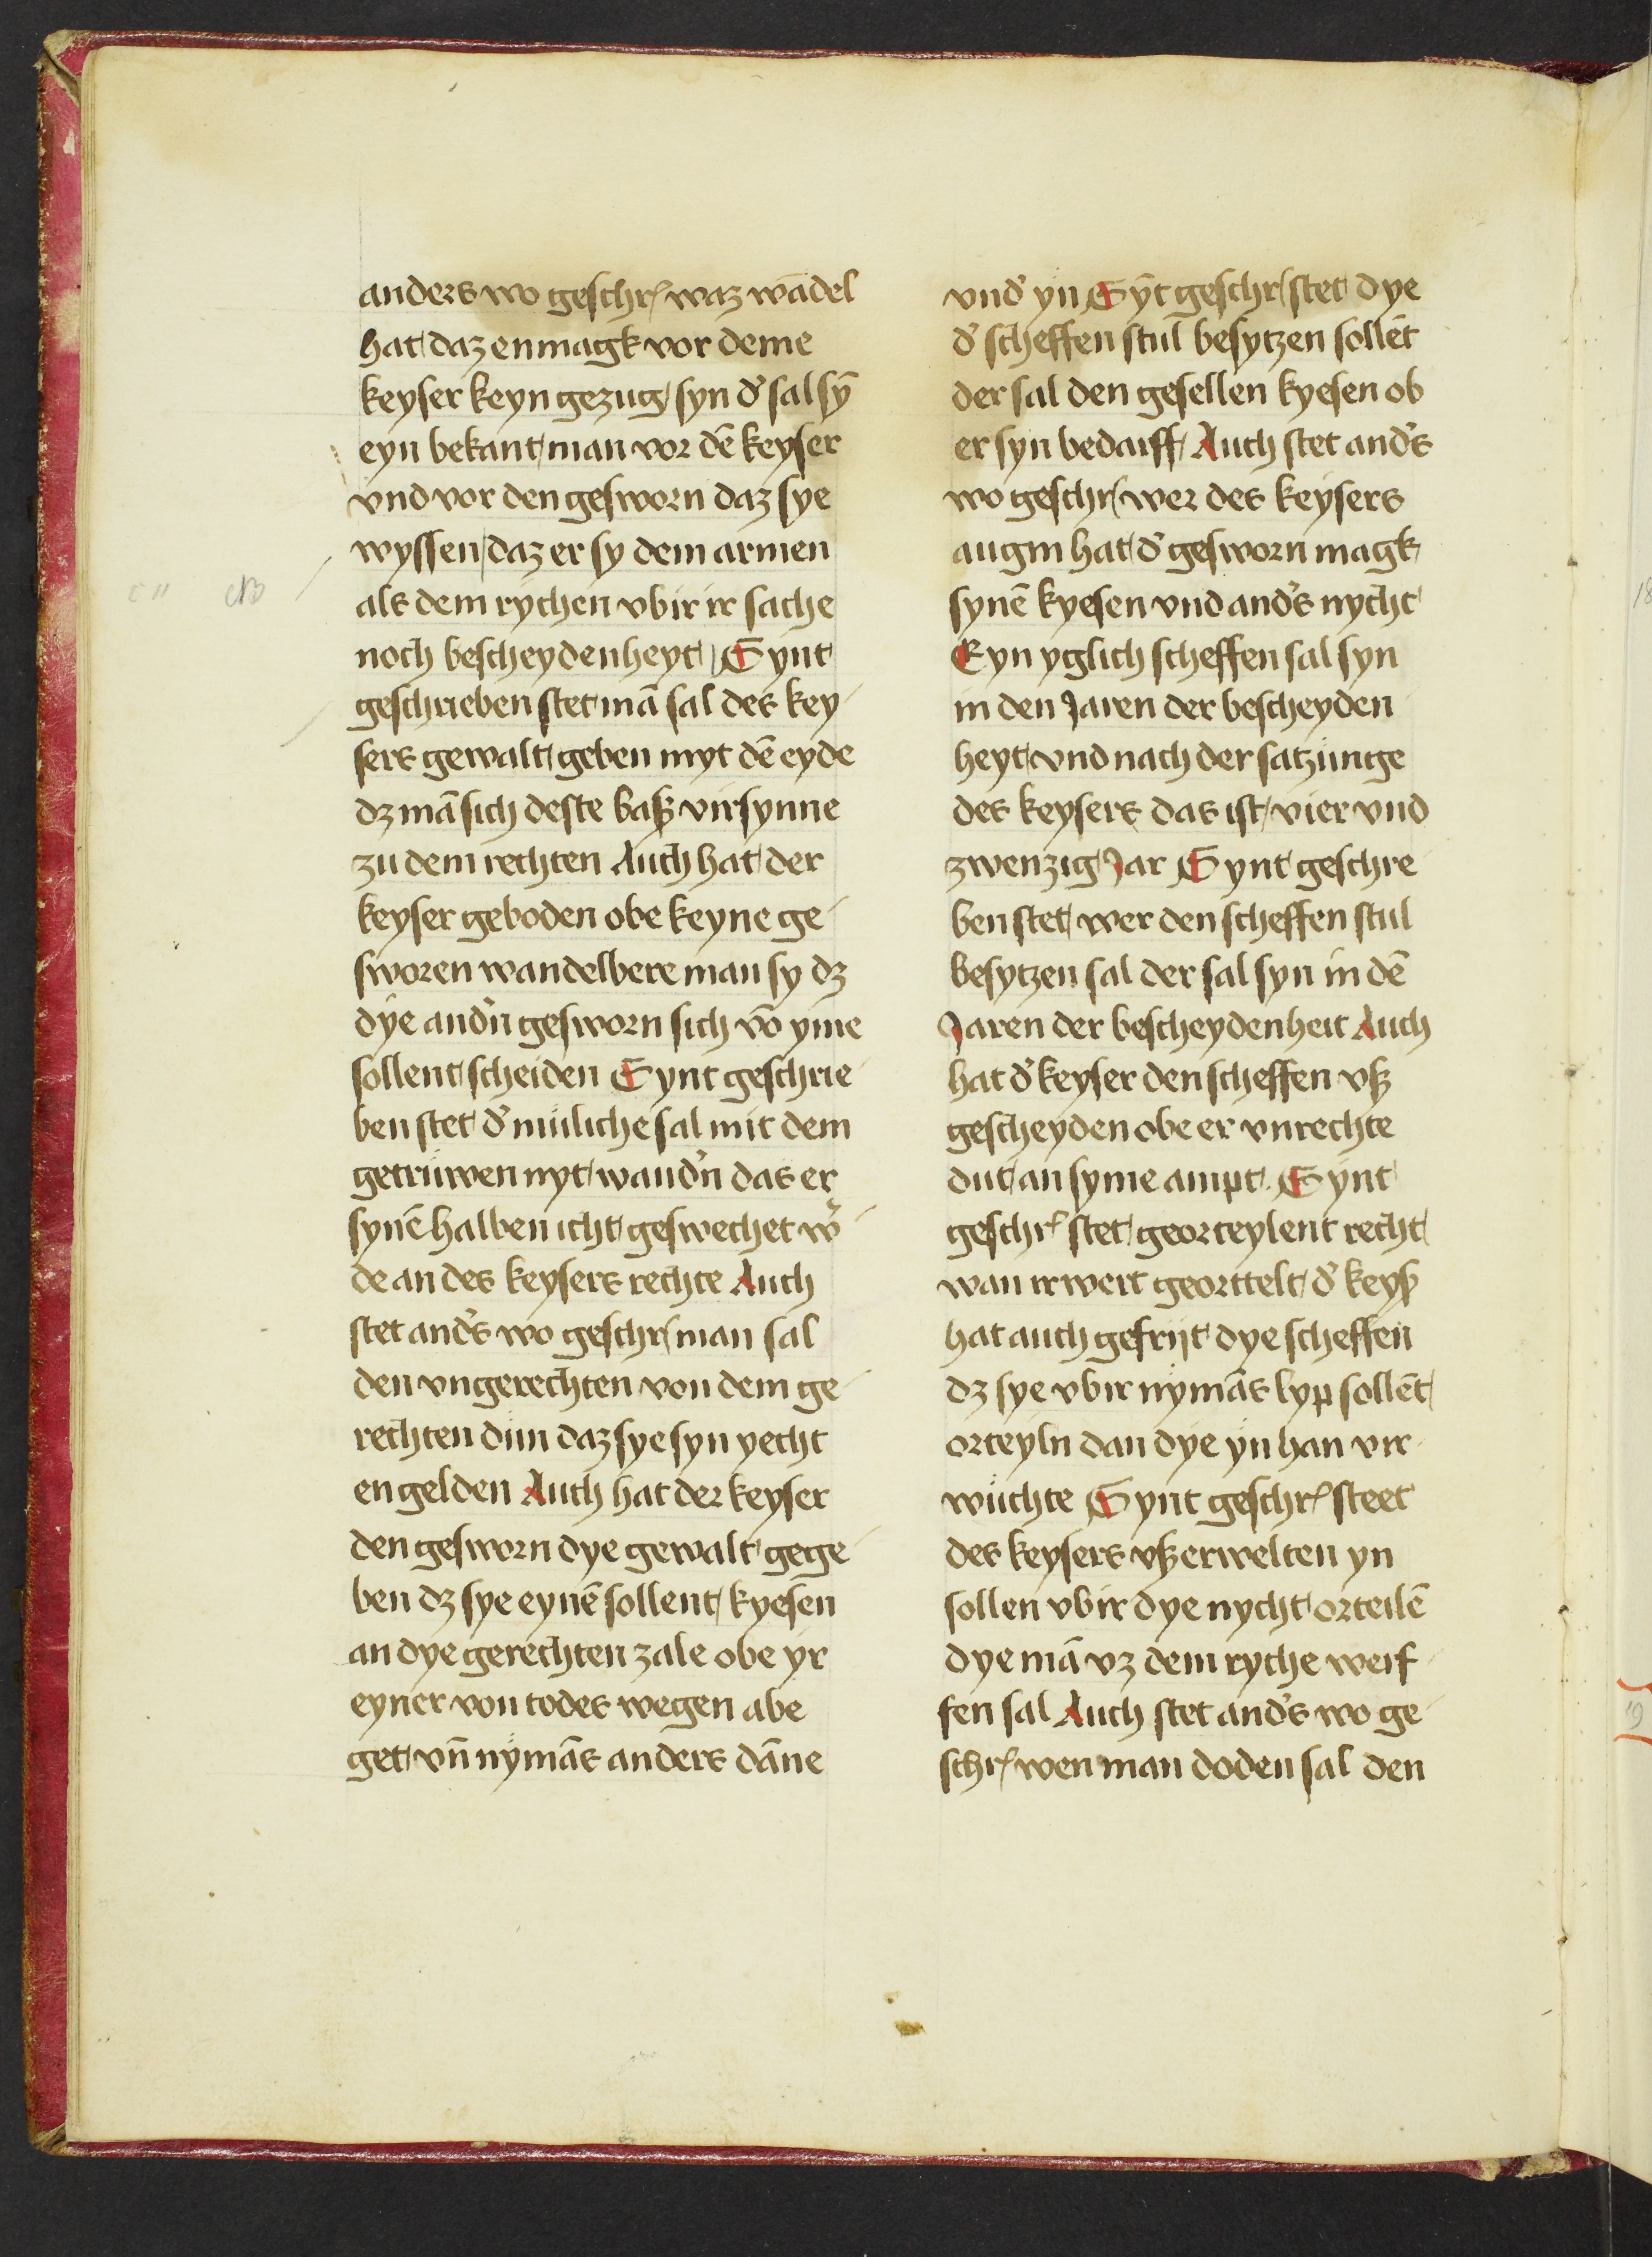 anders wo geschrꝭ waz wādel
hat daz enmagk vor deme
keyser keyn gezug syn d̉ sal sȳ
eyn bekant man vor dē keyser
vnd vor den gesworn daz sye
wyssen daz er sy dem armen
als dem rychen vbir ir sache
noch bescheydenheyt Synt
geschrieben stet mā sal des key-
sers gewalt geben myt dē eyde
dz mā sich deste baß virsynne
zu dem rechten Auch hat der
keyser geboden obe keyne ge-
sworen wandelbere man sy dz
dye and̉n gesworn sich vō yme
sollent scheiden Synt geschrie-
ben stet d̉ muliche sal mit dem
getruwen nyt wand̉n das er
synē halben icht geswechet w̉-
de an des keysers rechte Auch
stet and̉s wo geschrꝭ man sal
den vngerechten von dem ge-
rechten dun daz sye syn yecht
engelden Auch hat der keyser
den gesworn dye gewalt gege-
ben dz sye eynē sollent kyesen
an dye gerechten zale obe yr
eyner von todes wegen abe
get vn̄ nymās anders dāne
vnd̉ yn Sȳt geschrꝭ stet dye
d̉ scheffen stul besytzen sollēt
der sal den gesellen kyesen ob
er syn bedarff Auch stet and̉s
wo geschrꝭ wer des keysers
augin hat d̉ gesworn magk
synē kyesen vnd and̉s nycht
Eyn yglich scheffen sal syn
in den Jaren der bescheyden
heyt vnd nach der satzunge
des keysers das ist vier vnd
zwenzig Jar Synt geschre
ben stet wer den scheffen stul
besytzen sal der sal syn in dē
Jaren der bescheydenheit Auch
hat d̉ keyser den scheffen vß
gescheyden obe er vnrechte
dut an syme ampt. Synt
geschrꝭ stet georteylent recht
wan ir wert georttelt d̉ keyß
hat auch gefrijt dye scheffen
dz sye vbir nymās lyp sollēt
orteyln dan dye yn han vir-
wuchte Synt geschrꝭ steet
des keysers vßerwelten yn
sollen vbir dye nycht orteilē
dye mā vz dem ryche werf-
fen sal Auch stet and̉s wo ge-
schrꝭ wen man doden sal den
18
19